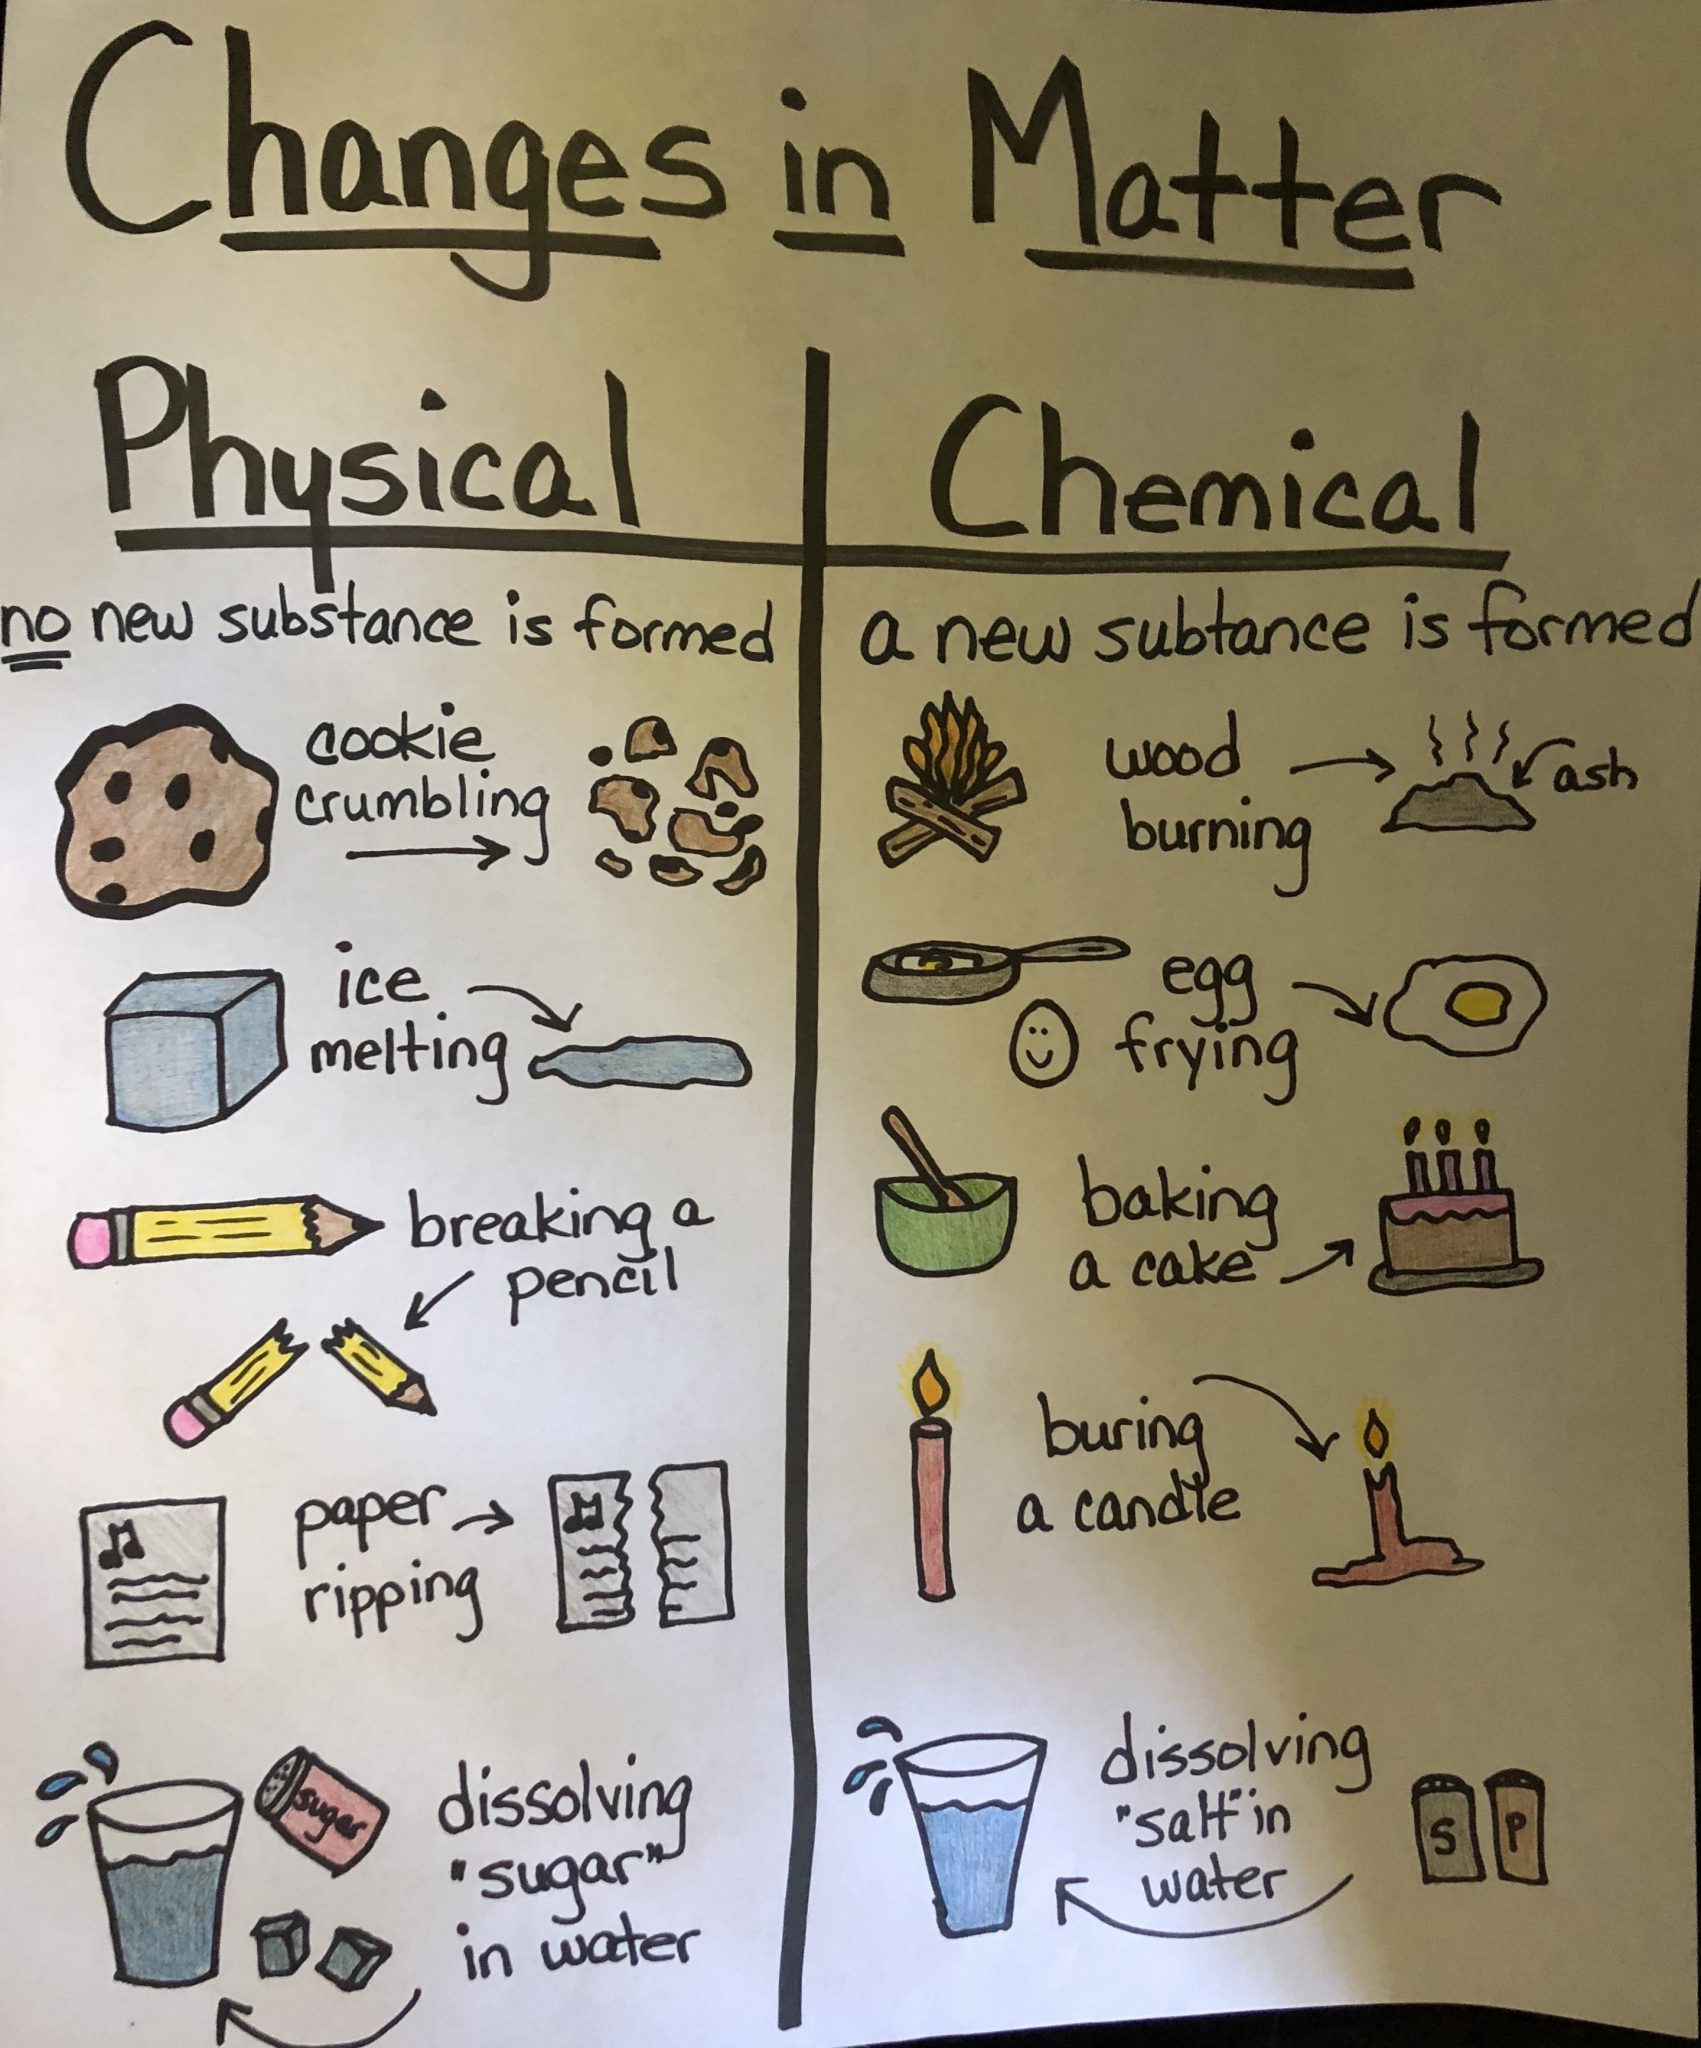 Changes in Matter
Physical
no new substance is formed
cookie
crumbling
ice
melting
breaking a
pencil
paper
ripping
sugar
dissolving
"sugar"
in water
Chemical
a new subtance is formed
wood
burning
ash
egg
frying
baking
a cake
buring
a candle
dissolving
"salt" in
water
S
P